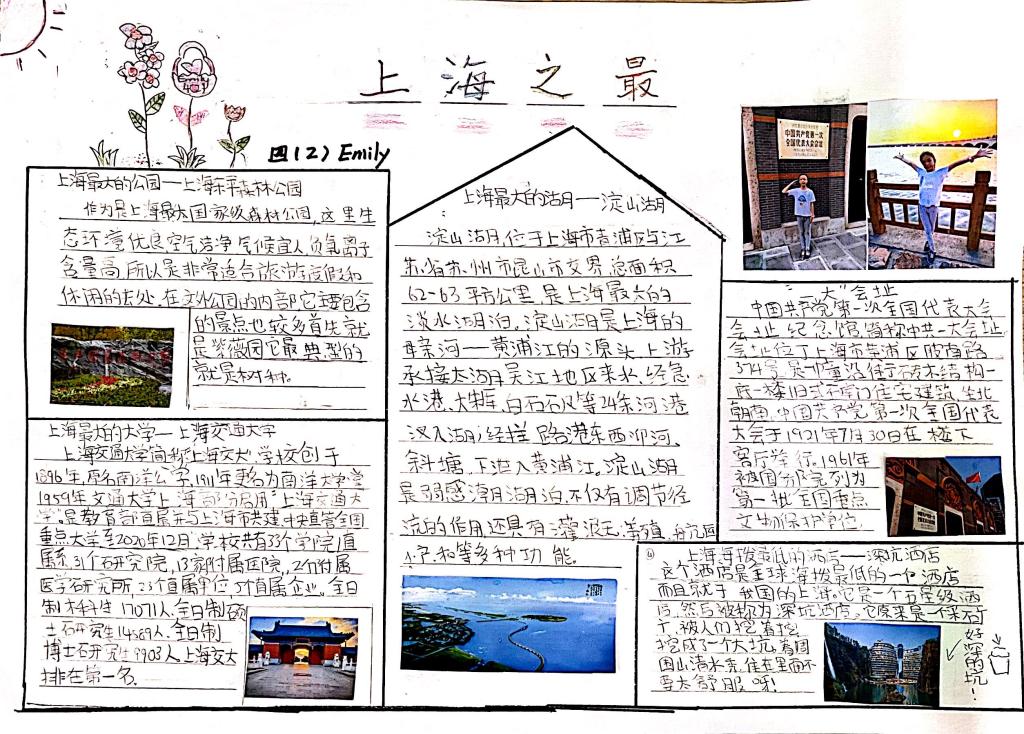 上海之最
四(2) Emily
上海最大的公园—上海东平森林公园
作为是上海最大国家级森林公园,这里生
态环境优良空气洁净气候宜人,负氧离子
含量高,所以是非常适合旅游度假和
休闲的去处,在
公园的内部它主要包含
的景点也较多首先就
是紫薇园它最典型的
就是树种。
上海最大的大学—上海交通大学
上海交通大学简称"上海交大"学校创于
1896年,原名南洋公学,1911年更名为南洋大学堂
1959年交通大学上海部分启用"上海交通大
学"。是教育部直属并与上海市共建,中央直管全国
重点大学至2020年12月,学校共有33个学院/直
属系,31个研究院,13家附属医院,2个附属
医学研究所,23个直属单位5个直属企业。全日
制本科生17071人,全日制硕
士研究生14589人、全日制
博士研究生9903人上海交大
排在第一名。
上海最大的湖—淀山湖
淀山湖,位于上海市青浦区与江
苏省苏州市昆山市交界,总面积
62-63平方公里,是上海最大的
淡水湖泊。淀山湖是上海的
母亲河—黄浦江的源头,上游
承接太湖吴江地区来水,经急
水港、大朱厍、白石矶等24条河港
汊入湖;经拦路港东西泖河、
斜塘,下泄入黄浦江。淀山湖
是弱感潮湖泊,不仅有调节径
流的作用,还具有灌溉、养殖、
等多种功能。
中国共产党第一次
全国代表大会会址
"一大"会址
中国共产党第一次全国代表大会
会址纪念馆,简称中共一大会址
会址位于上海市黄浦区黄陂南路
374号,是一幢沿街砖木结构一
底一楼旧式石库门住宅建筑,坐北
朝南。中国共产党第一次全国代表
大会于1921年7月30日在楼下
客厅举行。1961年
被国务院列为
第一批全国重点
文物保护单位。
上海海拔最低的酒店—深坑酒店
这个酒店是全球海拔最低的一個酒店
而且就于我国的上海。它是一个五星级酒
店,然后被称为深坑酒店,它原来是一个采石
厂,被人们挖着挖
挖成了一个大坑,着周
围山清水秀,住在里面不
要太舒服呀!
好深的坑!